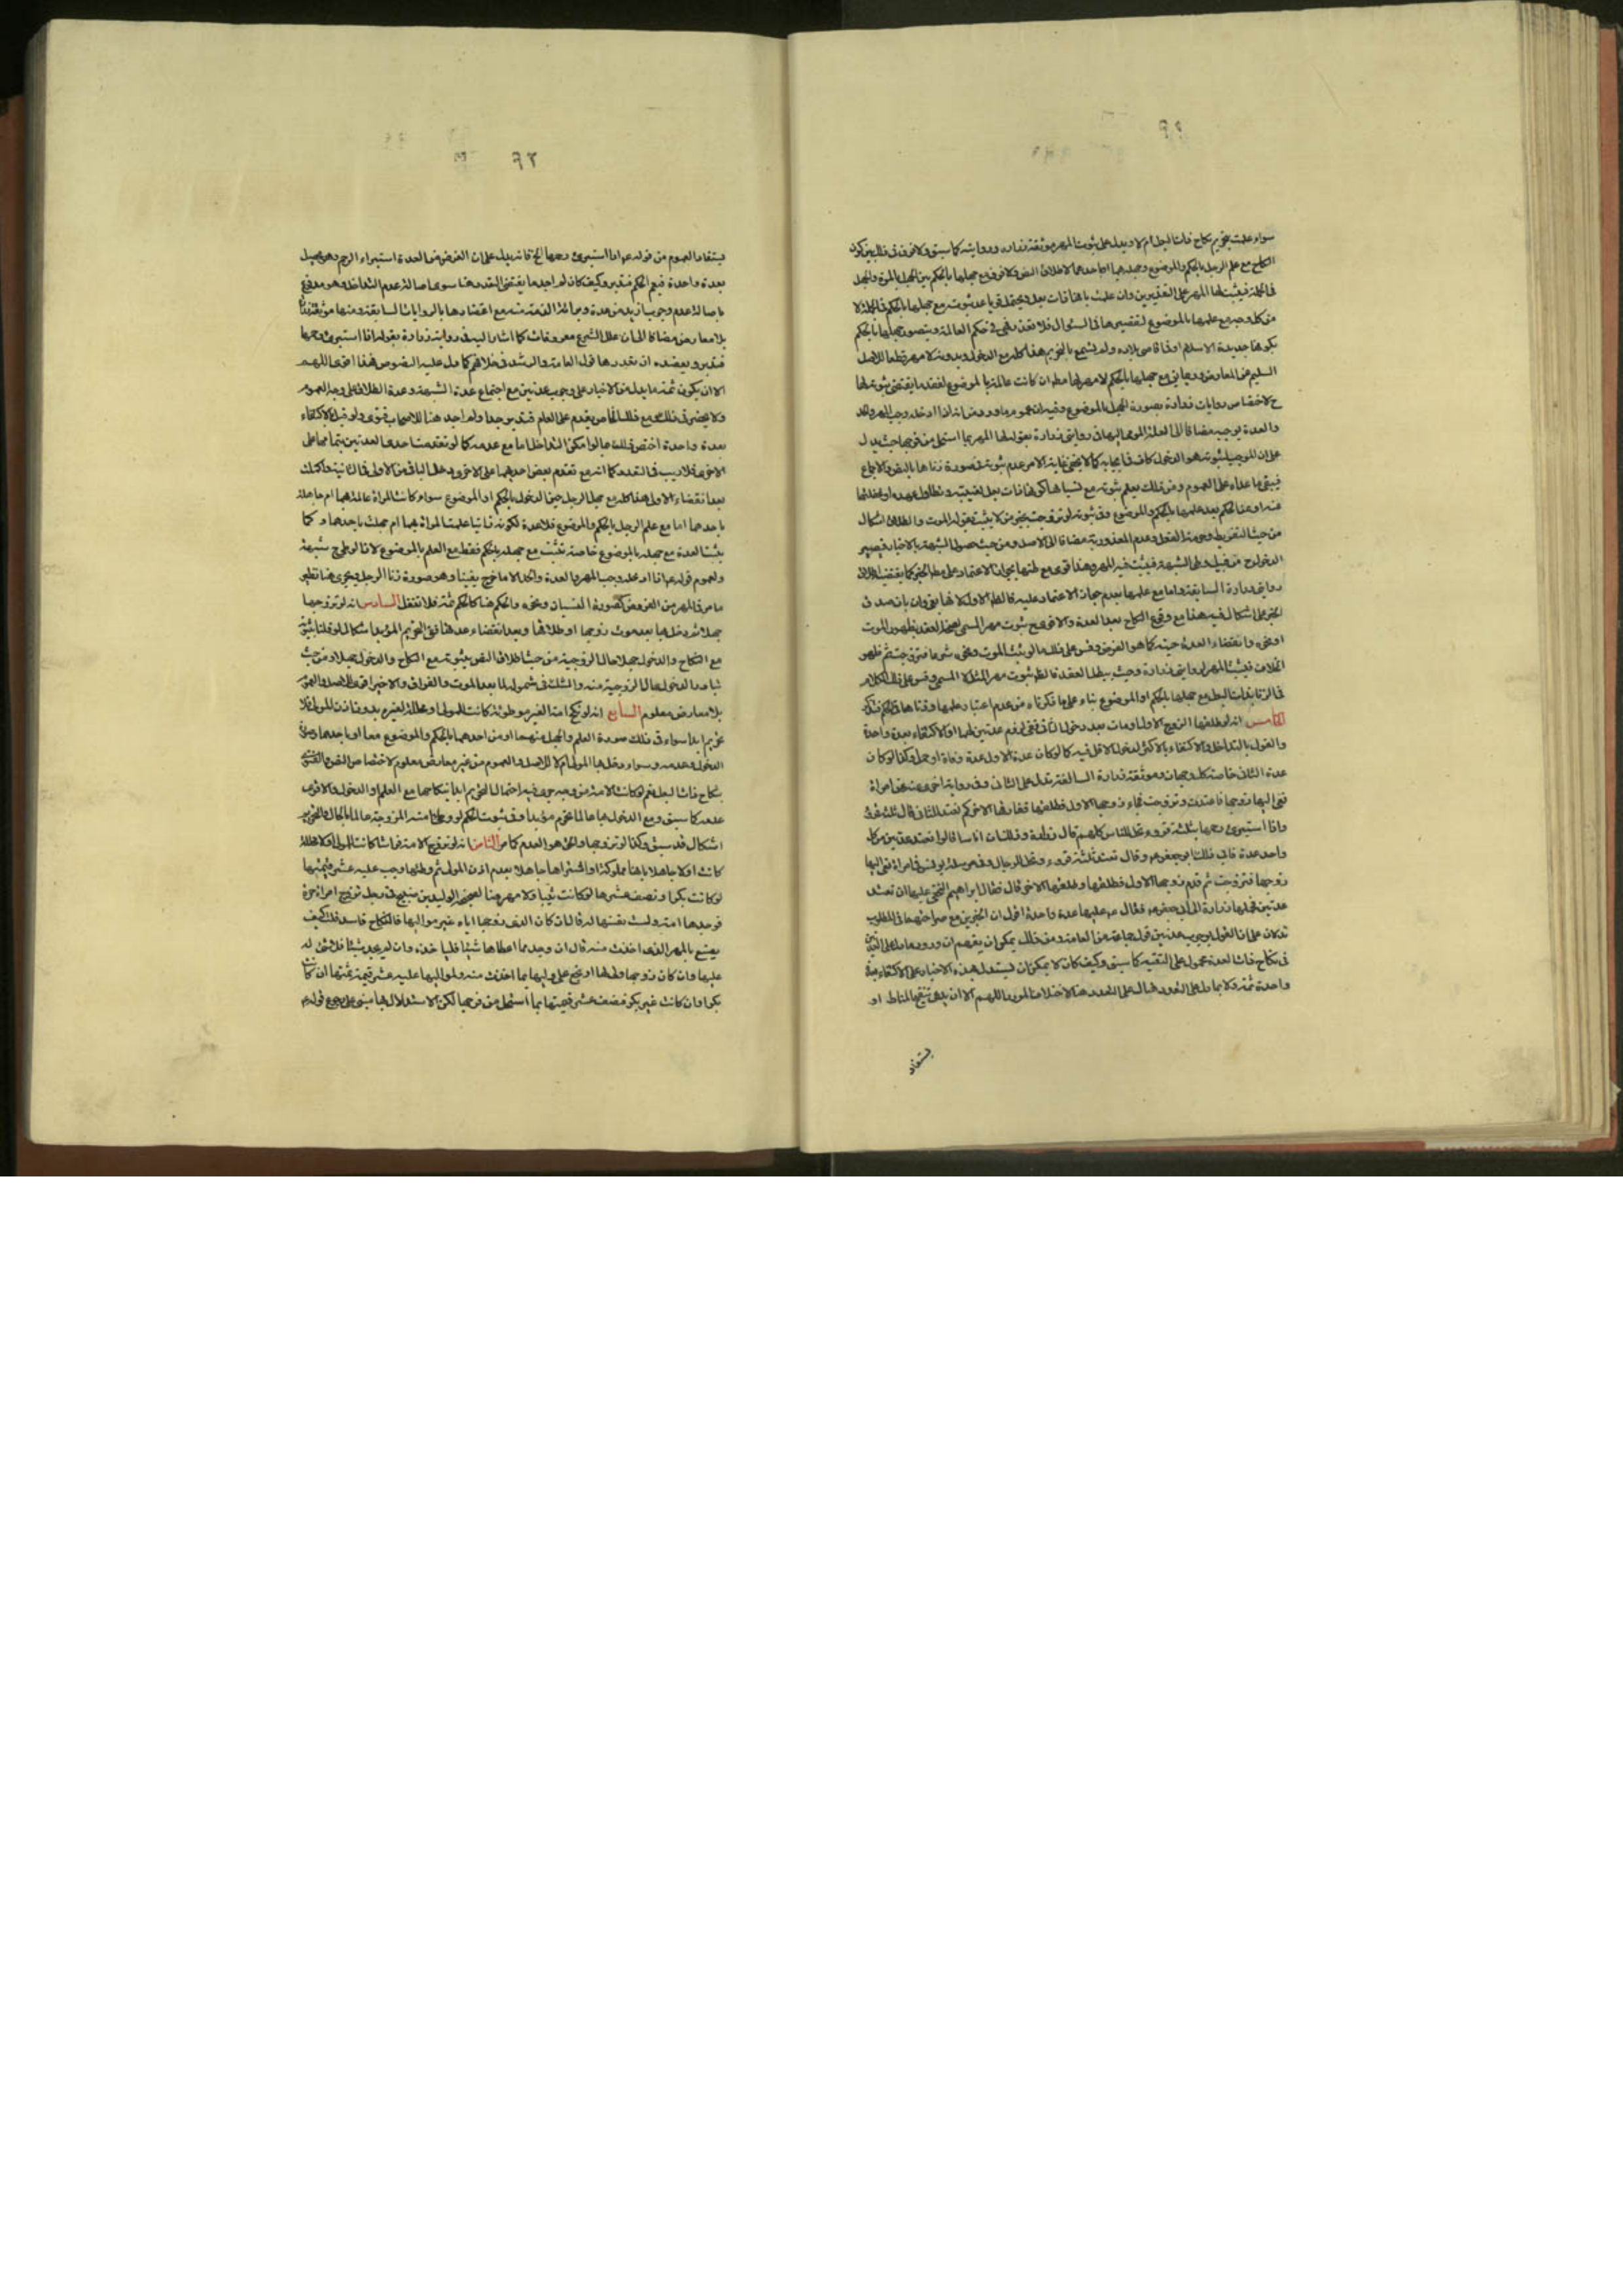 سواء علمت بتحريم نكاح ذات البعل ام لا ويدل على ثبوت المهر موثقة زرارة وروايته كما سبق ولا فرق في ذلك بين كون
النكاح مع علم الرجل بالحكم والموضوع وجهله بهما او احدهما لاطلاق النص ولا فرق مع جهلها بالحكم بين الجهل بالمرة والجهل
في الجملة فيثبت لها المهر على التقديرين وان علمت بانها ذات بعل ويحتمل قويا عدم ثبوته مع جهلها بالحكم في الجملة لا
من كل وجه مع علمها بالموضوع لتقصيرها في السئوال فلا تعذر فهي في حكم العالمة ويتصور جهلها بالحكم
بكونها جديدة الاسلام او في اقاصي بلاده ولم تسمع بالتحريم هذا كله مع الدخول وبدونه لا مهر قطعا للاصل
السليم عن المعارض ومع جهلها بالحكم لا مهر لها مطلقا ان كانت عالمة بالموضوع لفقد ما يقتضي ثبوته لها
ح لاختصاص روايات زرارة بصورة الجهل بالموضوع وفيه ان عموم ما ورد من انه اذا ادخله وجب المهر والجلد
والعدة يوجبه مضافا الى العلة المومى اليها في روايتي زرارة بقوله لها المهر بما استحل من فرجها حيث يدل
على ان الموجب لثبوته هو الدخول كاف في ايجابه كما لا يخفى غاية الامر عدم ثبوته في صورة زناها بالنص والاجماع
فيبقى ما عداه على العموم ومن ذلك يعلم ثبوته مع نسيانها كونها ذات بعل لغيبته وتطاول عهده او غفلتها
عنه او عن الحكم بعد علمها بالحكم والموضوع وفي ثبوته لو تزوجت بخبر من لا يثبت بقوله الموت والطلاق اشكال
من حيث التفريط وحرمة العقد وعدم المعذورية مضافا الى الاصل ومن حيث حصول الشبهة بالاخبار فيصير
الدخول ح من قبيل وطي الشبهة فيثبت فيه المهر وهذا قوي مع ظنها بجواز الاعتماد على هذا الخبر كما يقتضيه اطلاق
روايتي زرارة السابقة واما مع علمها بعدم جواز الاعتماد عليه فالظاهر الاول لانها بغي وان بان صدق
الخبر على اشكال فيه هذا مع وقوع النكاح بعد العدة والاقوى ح ثبوت مهر المسمى لصحة العقد بظهور الموت
او نحوه وانقضاء العدة حينه كما هو الفرض وقس على ذلك ما لو يثبت الموت ونحوه شرعا فتزوجت ثم ظهر
الخلاف فيثبت المهر لروايتي زرارة وحيث يبطل العقد فالظاهر ثبوت مهر المثل لا المسمى وقس على ذلك الكلام
في الزنا بذات البعل مع جهلها بالحكم او الموضوع بناء على ما ذكرناه من عدم اعتبار علمها وزناها في الحكم فتذكر
الخامس انه لو طلقها الزوج الاول او مات بعد دخول الثاني ففي لزوم عدتين لهما او الاكتفاء بعدة واحدة
والقول بالتداخل والاكتفاء بالاكثر لدخول الاقل فيه كما لو كان عدة الاول عدة وفاة او حمل وكذا لو كان
عدة الثاني خاصة كل وجهان وموثقة زرارة السالفة تدل على الثاني وفي رواية اخرى عنه عن امراة
نعى اليها زوجها فاعتدت وتزوجت فجاء زوجها الاول فطلقها ففارقها الاخر كم تعتد للثاني قال ثلثة قروء
واذا استبرئ رحمها بثلثة قروء تحل للناس كلهم قال زرارة وذلك ان اناسا قالوا تعتد عدتين من كل
واحد عدة فابى ذلك ابو جعفر عم وقال تعتد ثلثة قروء وتحل للرجال وفي مرسلة يونس في امراة نعى اليها
زوجها فتزوجت ثم قدم زوجها الاول فطلقها وطلقها الاخر قال فقال ابراهيم النخعي عليها ان تعتد
عدتين فحملها زرارة الى ابي جعفر عم فقال عم عليها عدة واحدة اقول ان الخبرين مع صراحتهما في المطلوب
تدلان على ان القول بوجوب عدتين قول جماعة من العامة ومن ذلك يمكن ان يفهم ان ورود ما دل على العدتين
في نكاح ذات العدة محمول على التقية كما سبق وكيف كان لا يمكن ان يستدل بهذه الاخبار على الاكتفاء بعدة
واحدة ثمة ولا بما دل على التعدد هناك على التعدد هنا لاختلاف المورد اللهم الا ان يدعى تنقيح المناط او
يستفاد
٩٢
يستفاد العموم من قوله عم اذا استبرئ رحمها الخ فانه يدل على ان الغرض من العدة استبراء الرحم وهو يحصل
بعدة واحدة فيعم الحكم فتدبر وكيف كان لم اجد ما يقتضي التعدد هنا سوى اصالة عدم التداخل وهو مدفوع
باصالة عدم وجوب ازيد من عدة وبرائة الذمة منه مع اعتضادها بالروايات السابقة ومنها موثقة زرارة
بلا معارض مضافا الى ان علل الشرع معروفات كما اشار اليه في رواية زرارة بقوله اذا استبرئ رحمها
فتدبر ويعضده ان تعددها قول العامة والرشد في خلافهم كما دل عليه النصوص فهذا اقوى اللهم
الا ان يكون ثمة ما يدل من الاخبار على وجوب عدتين مع اجتماع عدة الشبهة وعدة الطلاق على وجه العموم
ولا يحضرني ذلك ومع ذلك الخاص يقدم على العام فتدبر جدا ولم اجد هنا للاصحاب فتوى ولو قيل بالاكتفاء
بعدة واحدة اختص ذلك بما لو امكن التداخل اما مع عدمه كما لو تقدمت احدى العدتين بتمامها على
الاخرى فلا ريب في التعدد كما انه مع تقدم بعض احديهما على الاخرى يدخل الباقي من الاولى في الثانية واكملت
بعد انقضاء الاولى هذا كله مع جهل الرجل حين الدخول بالحكم او الموضوع سواء كانت المراة عالمة بهما ام جاهلة
باحدهما اما مع علم الرجل بالحكم والموضوع فلا عدة لكونه زانيا علمت المراة بهما ام جهلت باحدهما وكما
يثبت العدة مع جهله بالموضوع خاصة تثبت مع جهله بالحكم فقط مع العلم بالموضوع لان الوطي ح شبهة
ولعموم قوله عم اذا ادخله وجب المهر والعدة والجلد الا ما خرج يقينا وهو صورة زنا الرجل ويجري هنا نظير
ما مر في المهر من الفروض كصورة النسيان ونحوه والحكم هنا كالحكم ثمة فلا تغفل السادس انه لو تزوجها
جهلا ثم دخل بها بعد موت زوجها او طلاقها وبعد انقضاء عدتها ففي التحريم المؤبد اشكال لو قلنا بثبوته
مع النكاح والدخول جهلا حال الزوجية من حيث اطلاق النص بثبوته مع النكاح والدخول جهلا ومن حيث
تبادر الدخول حال الزوجية منه والشك في شموله لما بعد الموت والفراق والاخير اقوى للاصل والعموم
بلا معارض معلوم السابع انه لو نكح امة الغير موطوئة كانت للمولى او محللة لغيره بدون اذن المولى فلا
تحريم ابدا سواء في ذلك صورة العلم والجهل منهما او من احدهما بالحكم والموضوع معا او باحدهما وسواء
الدخول وعدمه وسواء دخل بها المولى ام لا للاصل والعموم من غير معارض معلوم لاختصاص النص والفتوى
بنكاح ذات البعل نعم لو كانت الامة مزوجة جرى فيه احتمال التحريم ابدا بنكاحها مع العلم والدخول والاقوى
عدمه كما سبق ومع الدخول بها عالما تحرم مؤبدا وفي ثبوت الحكم لو وطئ امته المزوجة عالما بالحال والتحريم
اشكال قد سبق وكذا لو تزوجها والحق هو العدم كما مر الثامن انه لو تزوج الامة ذات كانت المولى او محللة
كانت اولا جاهلا بانها مملوكة او اشتراها جاهلا بعدم اذن المولى ثم وطئها وجب عليه عشر قيمتها
لو كانت بكرا ونصف عشرها لو كانت ثيبا ولا مهر هنا لصحيحة الوليد بن صبيح في رجل تزوج امراة حرة
فوجدها امة دلست نفسها له قال ان كان الذي زوجها اياه غير مواليها فالنكاح فاسد قلت كيف
يصنع بالمهر الذي اخذت منه قال ان وجد مما اعطاها شيئا فلياخذه وان لم يجد شيئا فلا شئ له
عليها وان كان زوجها ولي لها ارتجع على وليها بما اخذت منه ولمواليها عليه عشر قيمة ثمنها ان كانت
بكرا وان كانت غير بكر فنصف عشر قيمتها بما استحل من فرجها لكن الاستدلال بها مبني على رجوع قوله عم